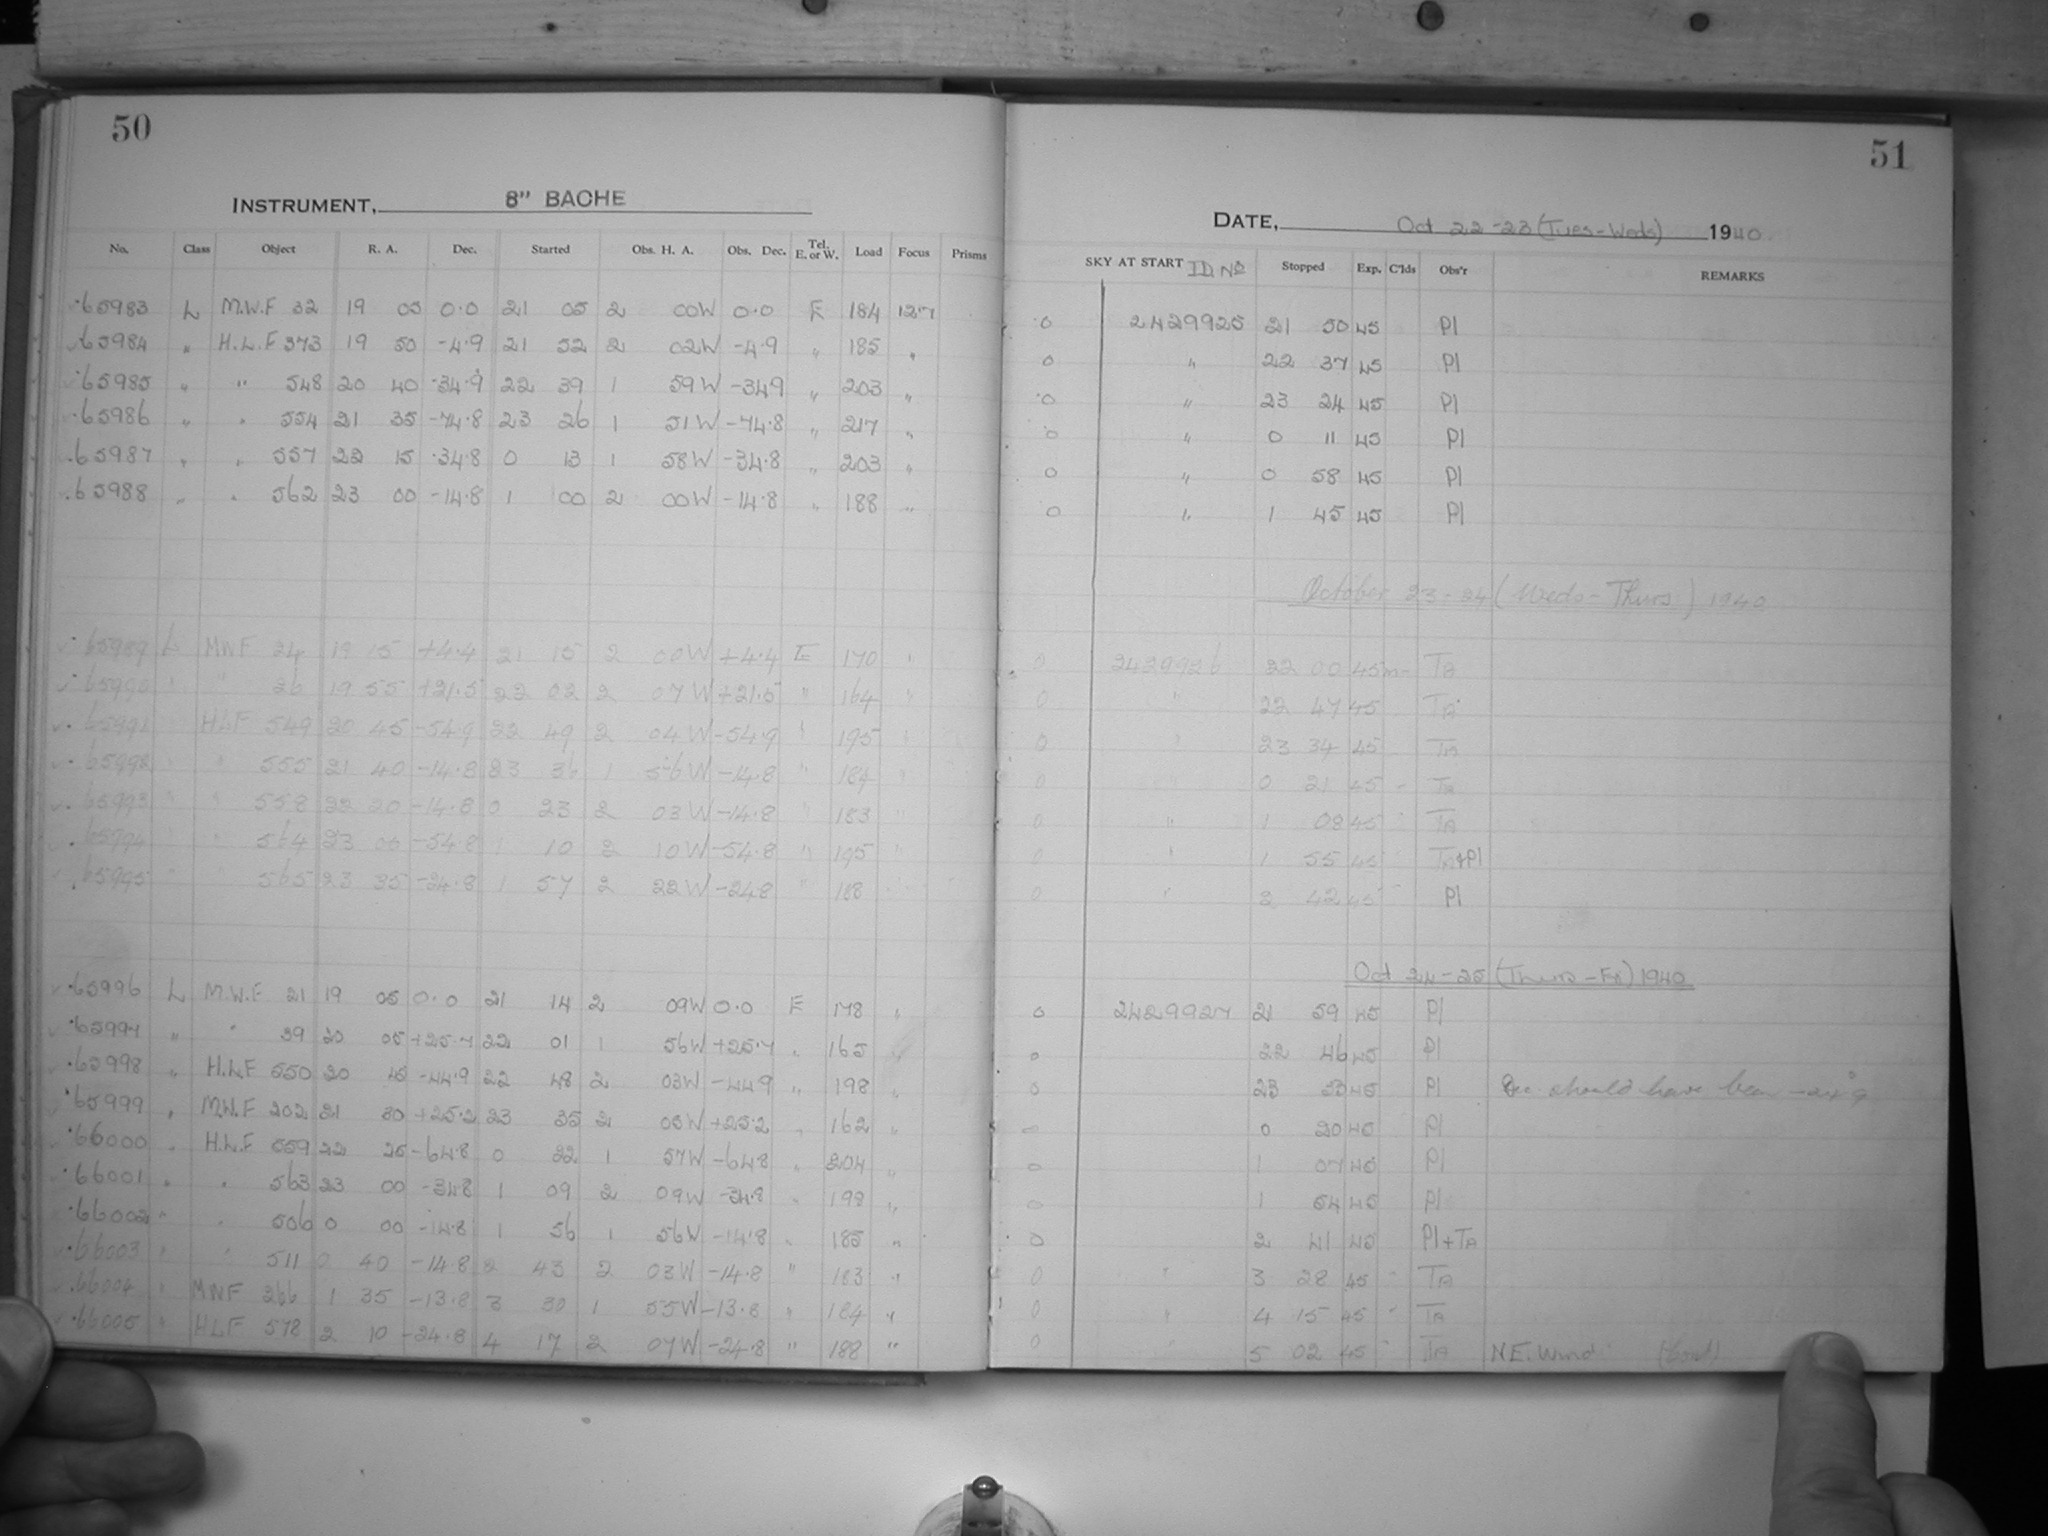 50
INSTRUMENT, 8" BACHE
No. Class Object R. A. Dec. Started Obs. H. A. Obs. Dec. Tel. E. or W. Load Focus Prisms
65983 L M.W.F 32 19 05 0.0 21 05 2 00W 0.0 E 184 127
65984 " H.L.F 573 19 50 -4.9 21 52 2 02W -4.9 " 185 "
65985 " " 548 20 40 -34.9 22 39 1 59W -349 " 203 "
65986 " " 554 21 35 -74.8 23 26 1 51W -74.8 " 217 "
65987 " " 557 22 15 -34.8 0 13 1 58W -34.8 " 203 "
65988 " " 562 23 00 -14.8 1 00 2 00W -14.8 " 188 "
65989 L MWF 24 19 15 +4.4 21 15 2 00W +4.4 E 170 "
65990 " " 26 19 55 +21.5 22 02 2 07W +21.5 " 164 "
65991 HLF 549 20 45 -54.9 22 49 2 04W -54.9 " 195 "
65992 " " 555 21 40 -14.8 23 36 1 56W -14.8 " 184 "
65993 " " 558 22 20 -14.8 0 23 2 03W -14.8 " 183 "
65994 " " 564 23 00 -54.8 1 10 2 10W -54.8 " 195 "
65995 " " 565 23 35 -24.8 1 57 2 22W -24.8 " 188
65996 L M.W.F 21 19 05 0.0 21 14 2 09W 0.0 E 178 "
65997 " " 39 20 05 +25.7 22 01 1 56W +25.7 " 165 "
65998 " H.L.F 550 20 45 -44.9 22 48 2 03W -449 " 198 "
65999 " M.W.F 202 21 30 +25.2 23 35 2 05W +25.2 " 162 "
66000 " H.L.F 559 22 25 -64.8 0 22 1 57W -64.8 " 204 "
66001 " " 563 23 00 -34.8 1 09 2 09W -34.8 " 198 "
66002 " " 506 0 00 -14.8 1 56 1 56W -14.8 " 185 "
66003 " " 511 0 40 -14.8 2 43 2 03W -14.8 " 183 "
66004 " MWF 266 1 35 -13.8 3 30 1 55W -13.8 " 184 "
66005 " HLF 578 2 10 -24.8 4 17 2 07W -24.8 " 188 "
51
DATE, Oct 22-23 (Tues-Weds) 1940
SKY AT START ID. No Stopped Exp. C'lds Obs'r REMARKS
0 2429925 21 50 45 Pl
0 " 22 37 45 Pl
0 " 23 24 45 Pl
0 " 0 11 45 Pl
0 " 0 58 45 Pl
0 " 1 45 45 Pl
October 23-24 (Weds-Thurs) 1940
0 2429926 22 00 45m TA
0 " 22 47 45 TA
0 " 23 34 45 TA
0 " 0 21 45 TA
0 " 1 08 45 TA
0 " 1 55 45 TA+Pl
0 " 2 42 45 Pl
Oct 24-25 (Thurs-Fri) 1940
0 2429927 21 59 45 Pl
0 22 46 45 Pl
0 23 33 45 Pl Dec. should have been -24°9
0 0 20 45 Pl
0 1 07 45 Pl
0 1 54 45 Pl
0 2 41 45 Pl+TA
0 " 3 28 45 TA
0 " 4 15 45 TA
0 " 5 02 45 TA N.E. Wind (Cont)